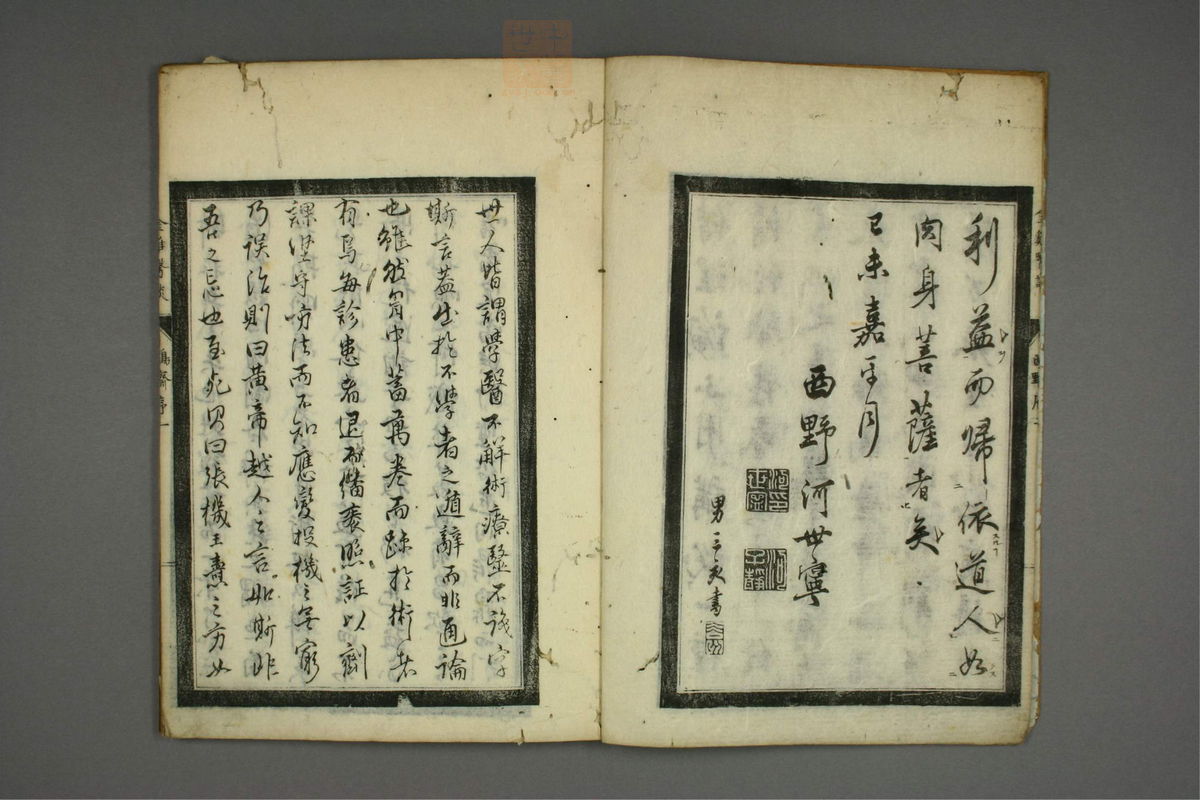 利益而歸依道人如
肉身菩薩者矣
己未嘉平月
西野河世寧
男三亥書
世人皆謂學醫不解術療醫不識字
斯言蓋出於不學者之遁辭而非通論
也雖然胷中蓄萬卷而疎於術者
有焉每診患者退而繙褱照証以劑
課墨守方法而不知應變投機之無窮
乃誤治則曰黃帝越人之言如斯非
吾之忘也至死則曰張機王燾之方如